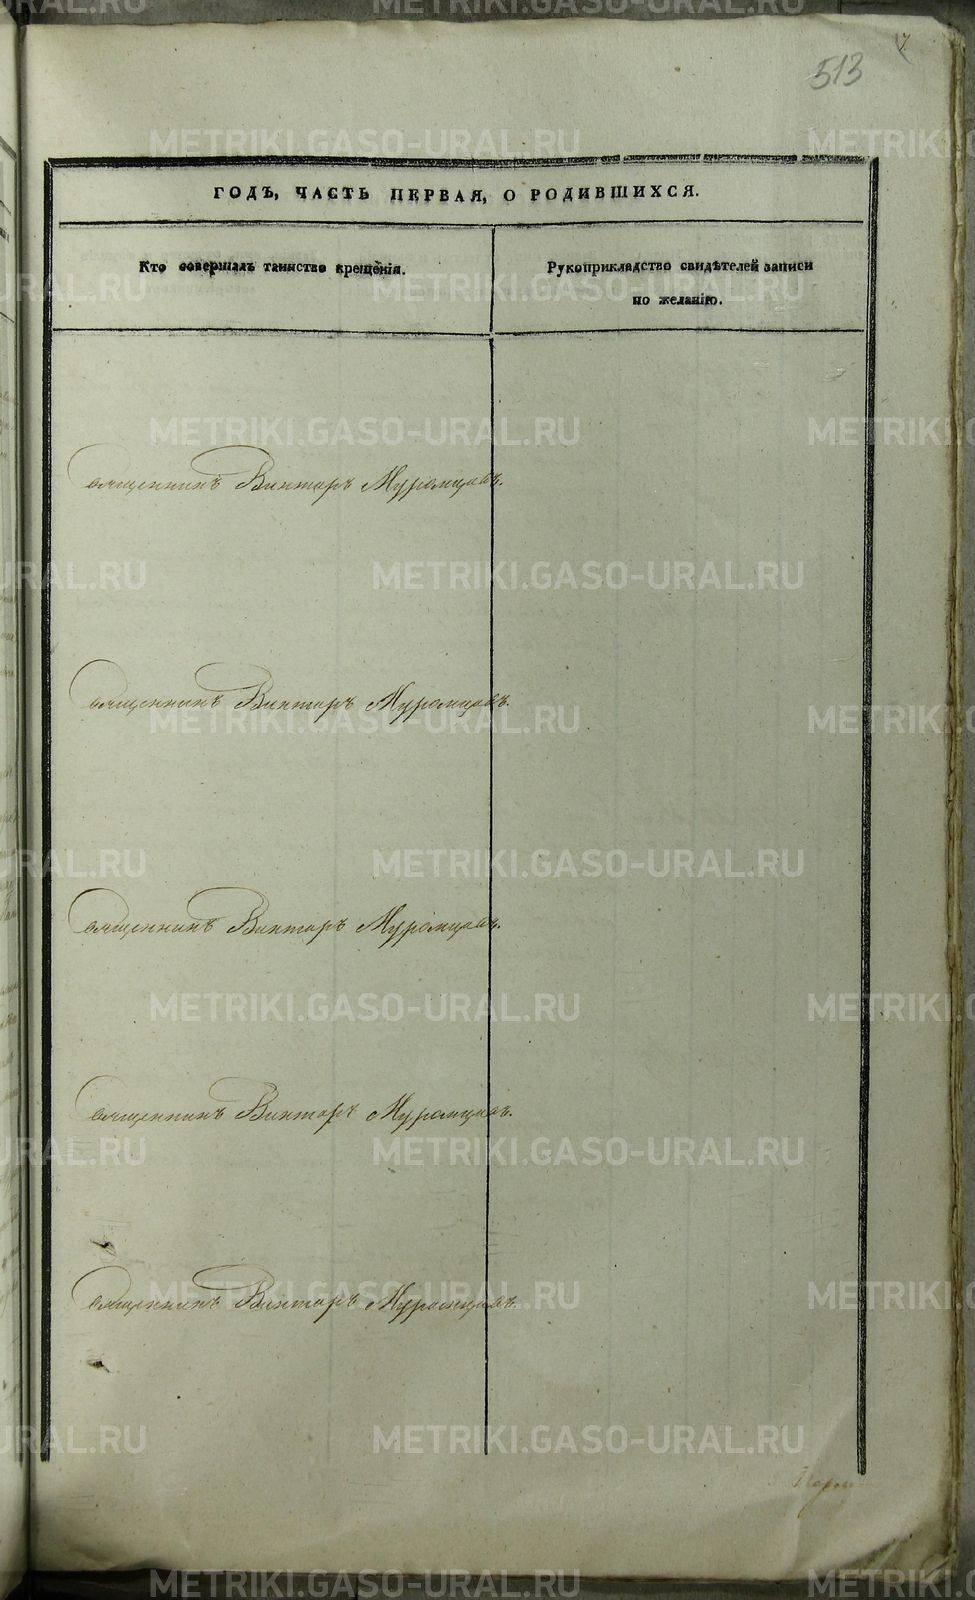 7
513
ГОДЪ, ЧАСТЬ ПЕРВАЯ, О РОДИВШИХСЯ.
Кто совершалъ таинство крещенія.
Рукоприкладство свидѣтелей записи
по желанію.
Священникъ Викторъ Муромцовъ.
Священникъ Викторъ Муромцовъ.
Священникъ Викторъ Муромцовъ.
Священникъ Викторъ Муромцовъ.
Священникъ Викторъ Муромцовъ.
METRIKI.GASO-URAL.RU